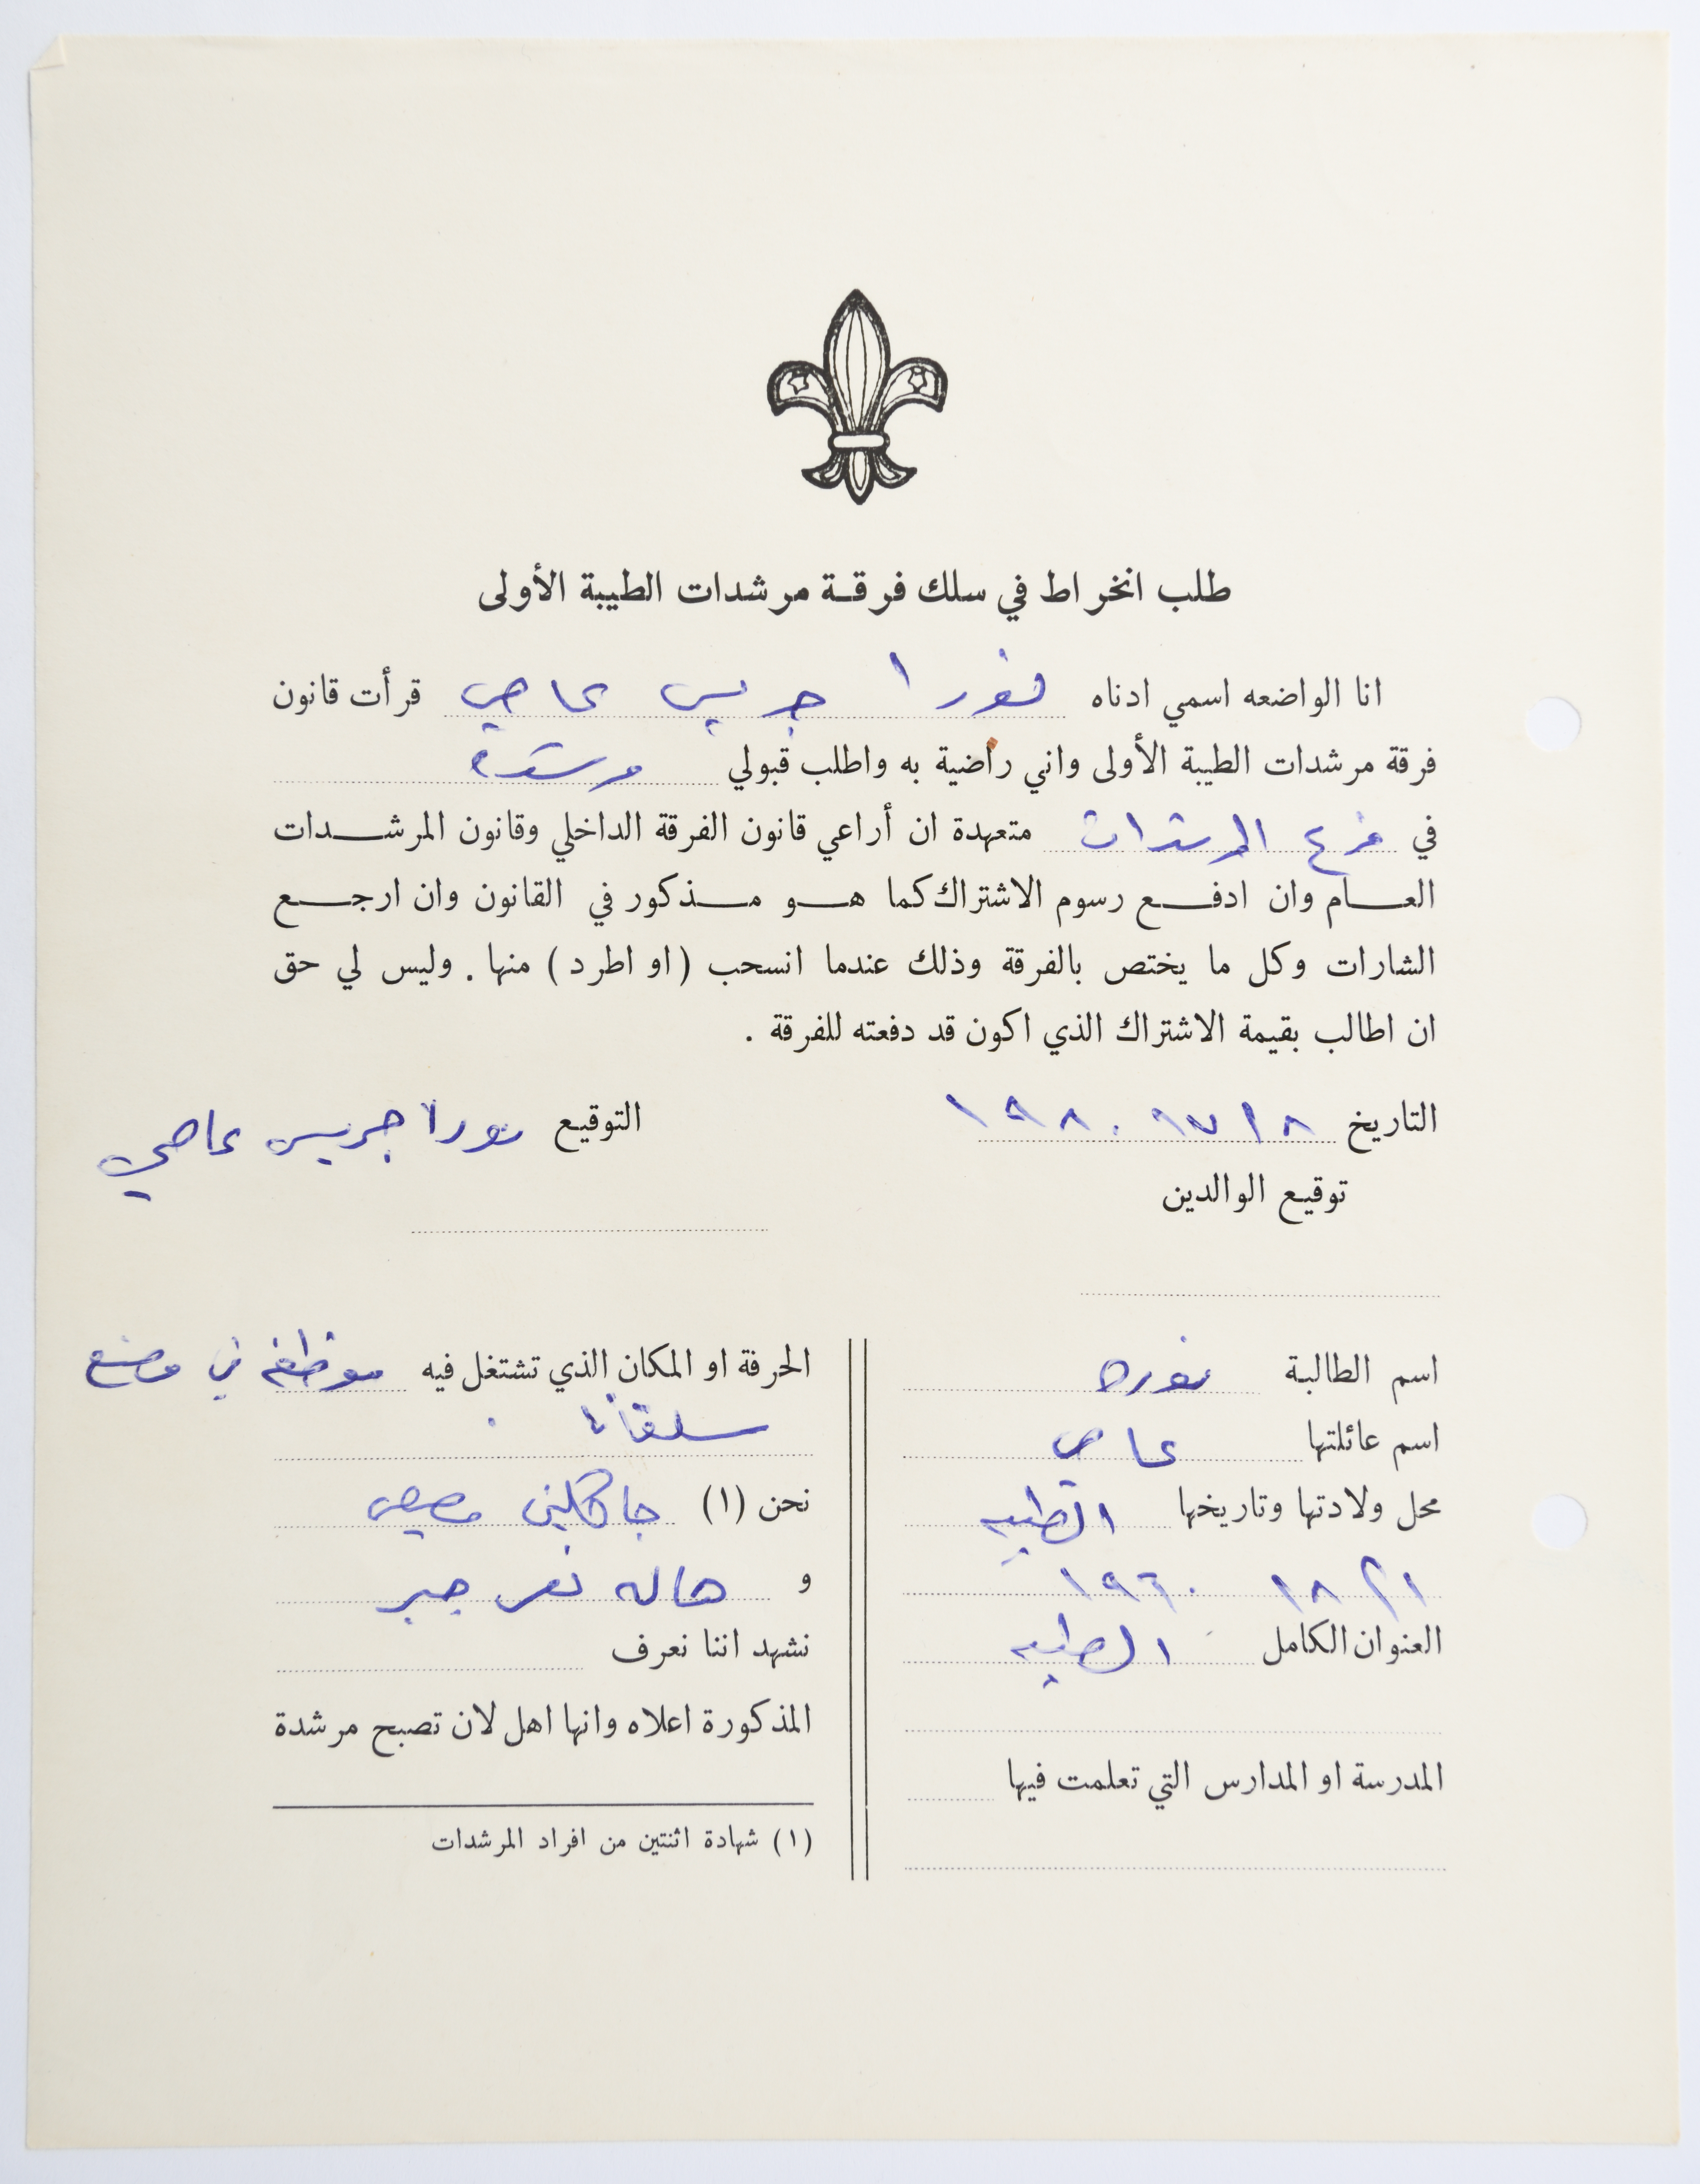 طلب انخراط في سلك فرقة مرشدات الطيبة الأولى
انا الواضعه اسمي ادناه نورا جريس عاصي قرأت قانون
فرقة مرشدات الطيبة الأولى واني راضية به واطلب قبولي مرشدة
في فرع المرشدات متعهدة ان أراعي قانون الفرقة الداخلي وقانون المرشدات
العام وان ادفع رسوم الاشتراك كما هو مذكور في القانون وان ارجع
الشارات وكل ما يختص بالفرقة وذلك عندما انسحب (او اطرد) منها. وليس لي حق
ان اطالب بقيمة الاشتراك الذي اكون قد دفعته للفرقة.
التاريخ ١٩٨٠
التوقيع نورا جريس عاصي
توقيع الوالدين
اسم الطالبة نوره
اسم عائلتها عاصي
محل ولادتها وتاريخها الطيبه
٢١ ٨١ ١٩٦٠
العنوان الكامل الطيبه
المدرسة او المدارس التي تعلمت فيها
الحرفة او المكان الذي تشتغل فيه موظفه في مصنع
سلفانا
نحن (١) جاكلين مصيص
و هاله نصر جبر
نشهد اننا نعرف
المذكورة اعلاه وانها اهل لان تصبح مرشدة
(١) شهادة اثنتين من افراد المرشدات